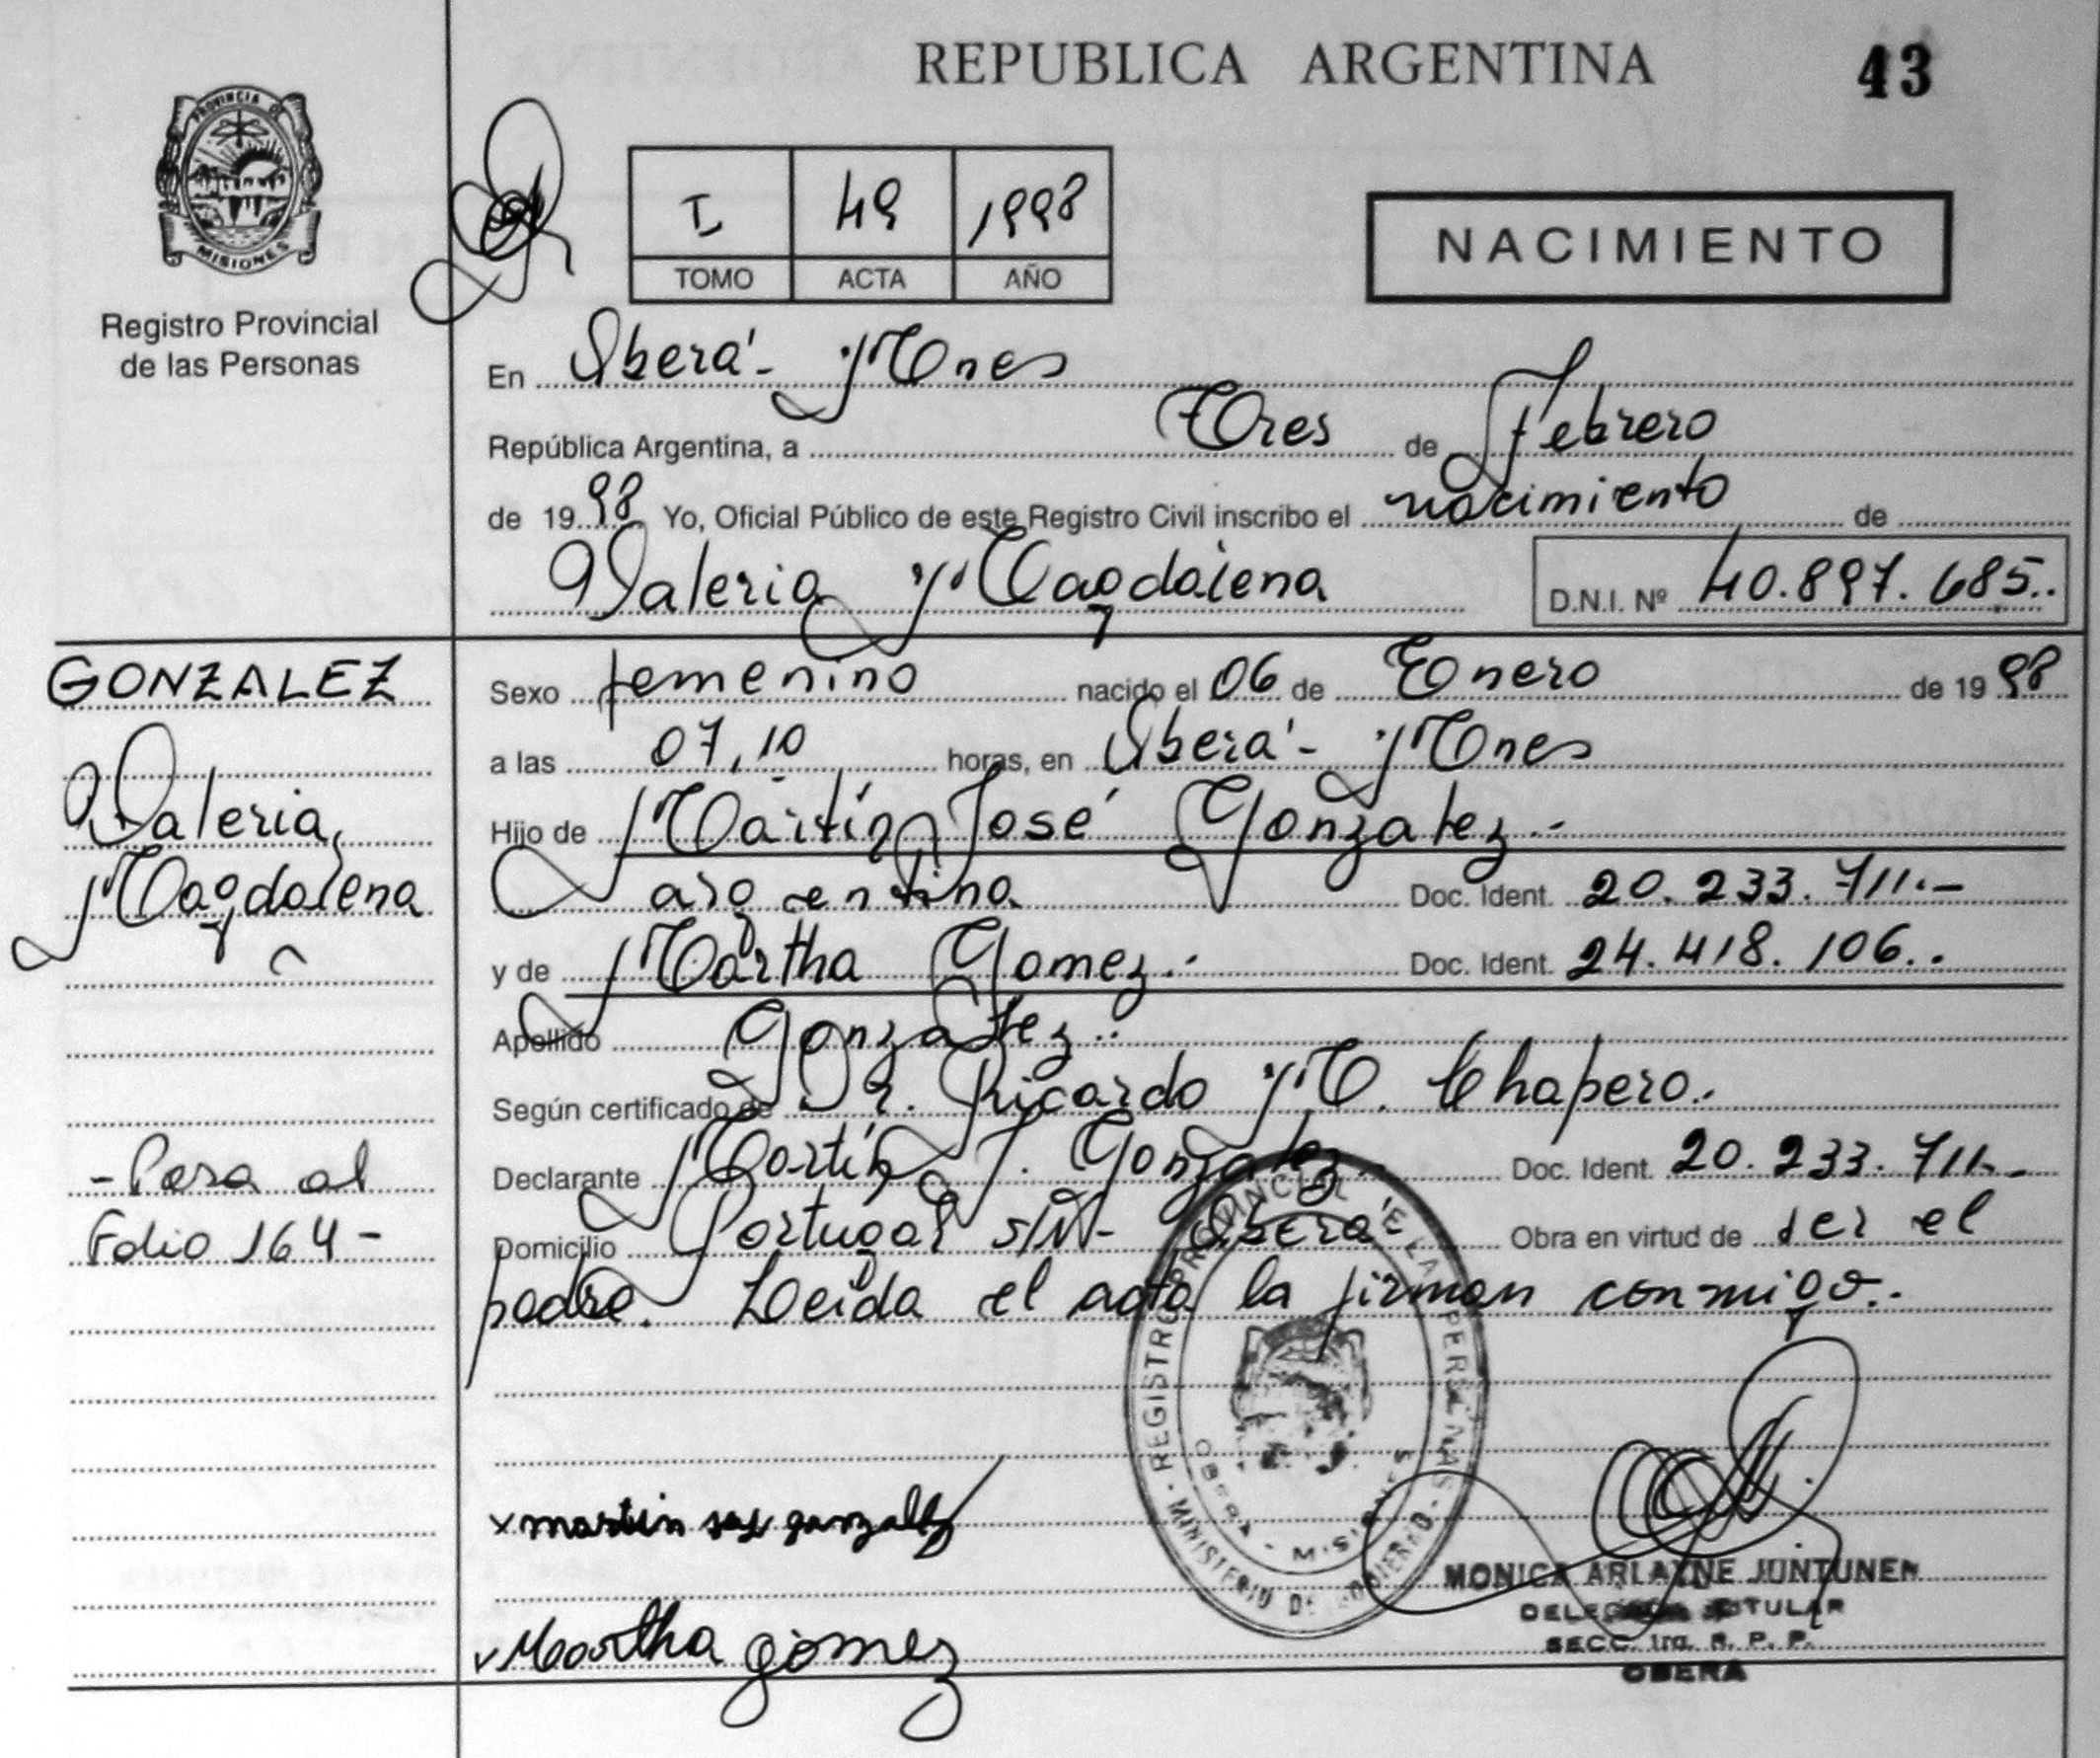 REPUBLICA ARGENTINA 43
PROVINCIA DE
MISIONES
Registro Provincial
de las Personas
I 49 1998
TOMO ACTA AÑO
NACIMIENTO
En Oberá - Mnes
República Argentina, a Tres de Febrero
de 19 98 Yo, Oficial Público de este Registro Civil inscribo el nacimiento de
Valeria Magdalena D.N.I. Nº 40.897.685..
GONZALEZ
Valeria
Magdalena
- Pasa al
Folio 164 -
Sexo femenino nacido el 06 de Enero de 19 98
a las 07,10 horas, en Oberá - Mnes
Hijo de Martín José Gonzalez.-
argentina Doc. Ident. 20.233.711.-
y de Martha Gomez.- Doc. Ident. 24.418.106..
Apellido Gonzalez..
Según certificado de Dr. Ricardo M. Chapero.
Declarante Martín J. Gonzalez.- Doc. Ident. 20.233.711.-
Domicilio Portugal s/N- Oberá Obra en virtud de ser el
padre. Leída el acta la firman conmigo..
REGISTRO PROVINCIAL DE LAS PERSONAS
MINISTERIO DE GOBIERNO
OBERA - MISIONES
x martin jose gonzalez
Martha gomez
MONICA ARLAYNE JUNTUNEN
DELEGADA TITULAR
SECC. 1ra. R. P. P.
OBERA